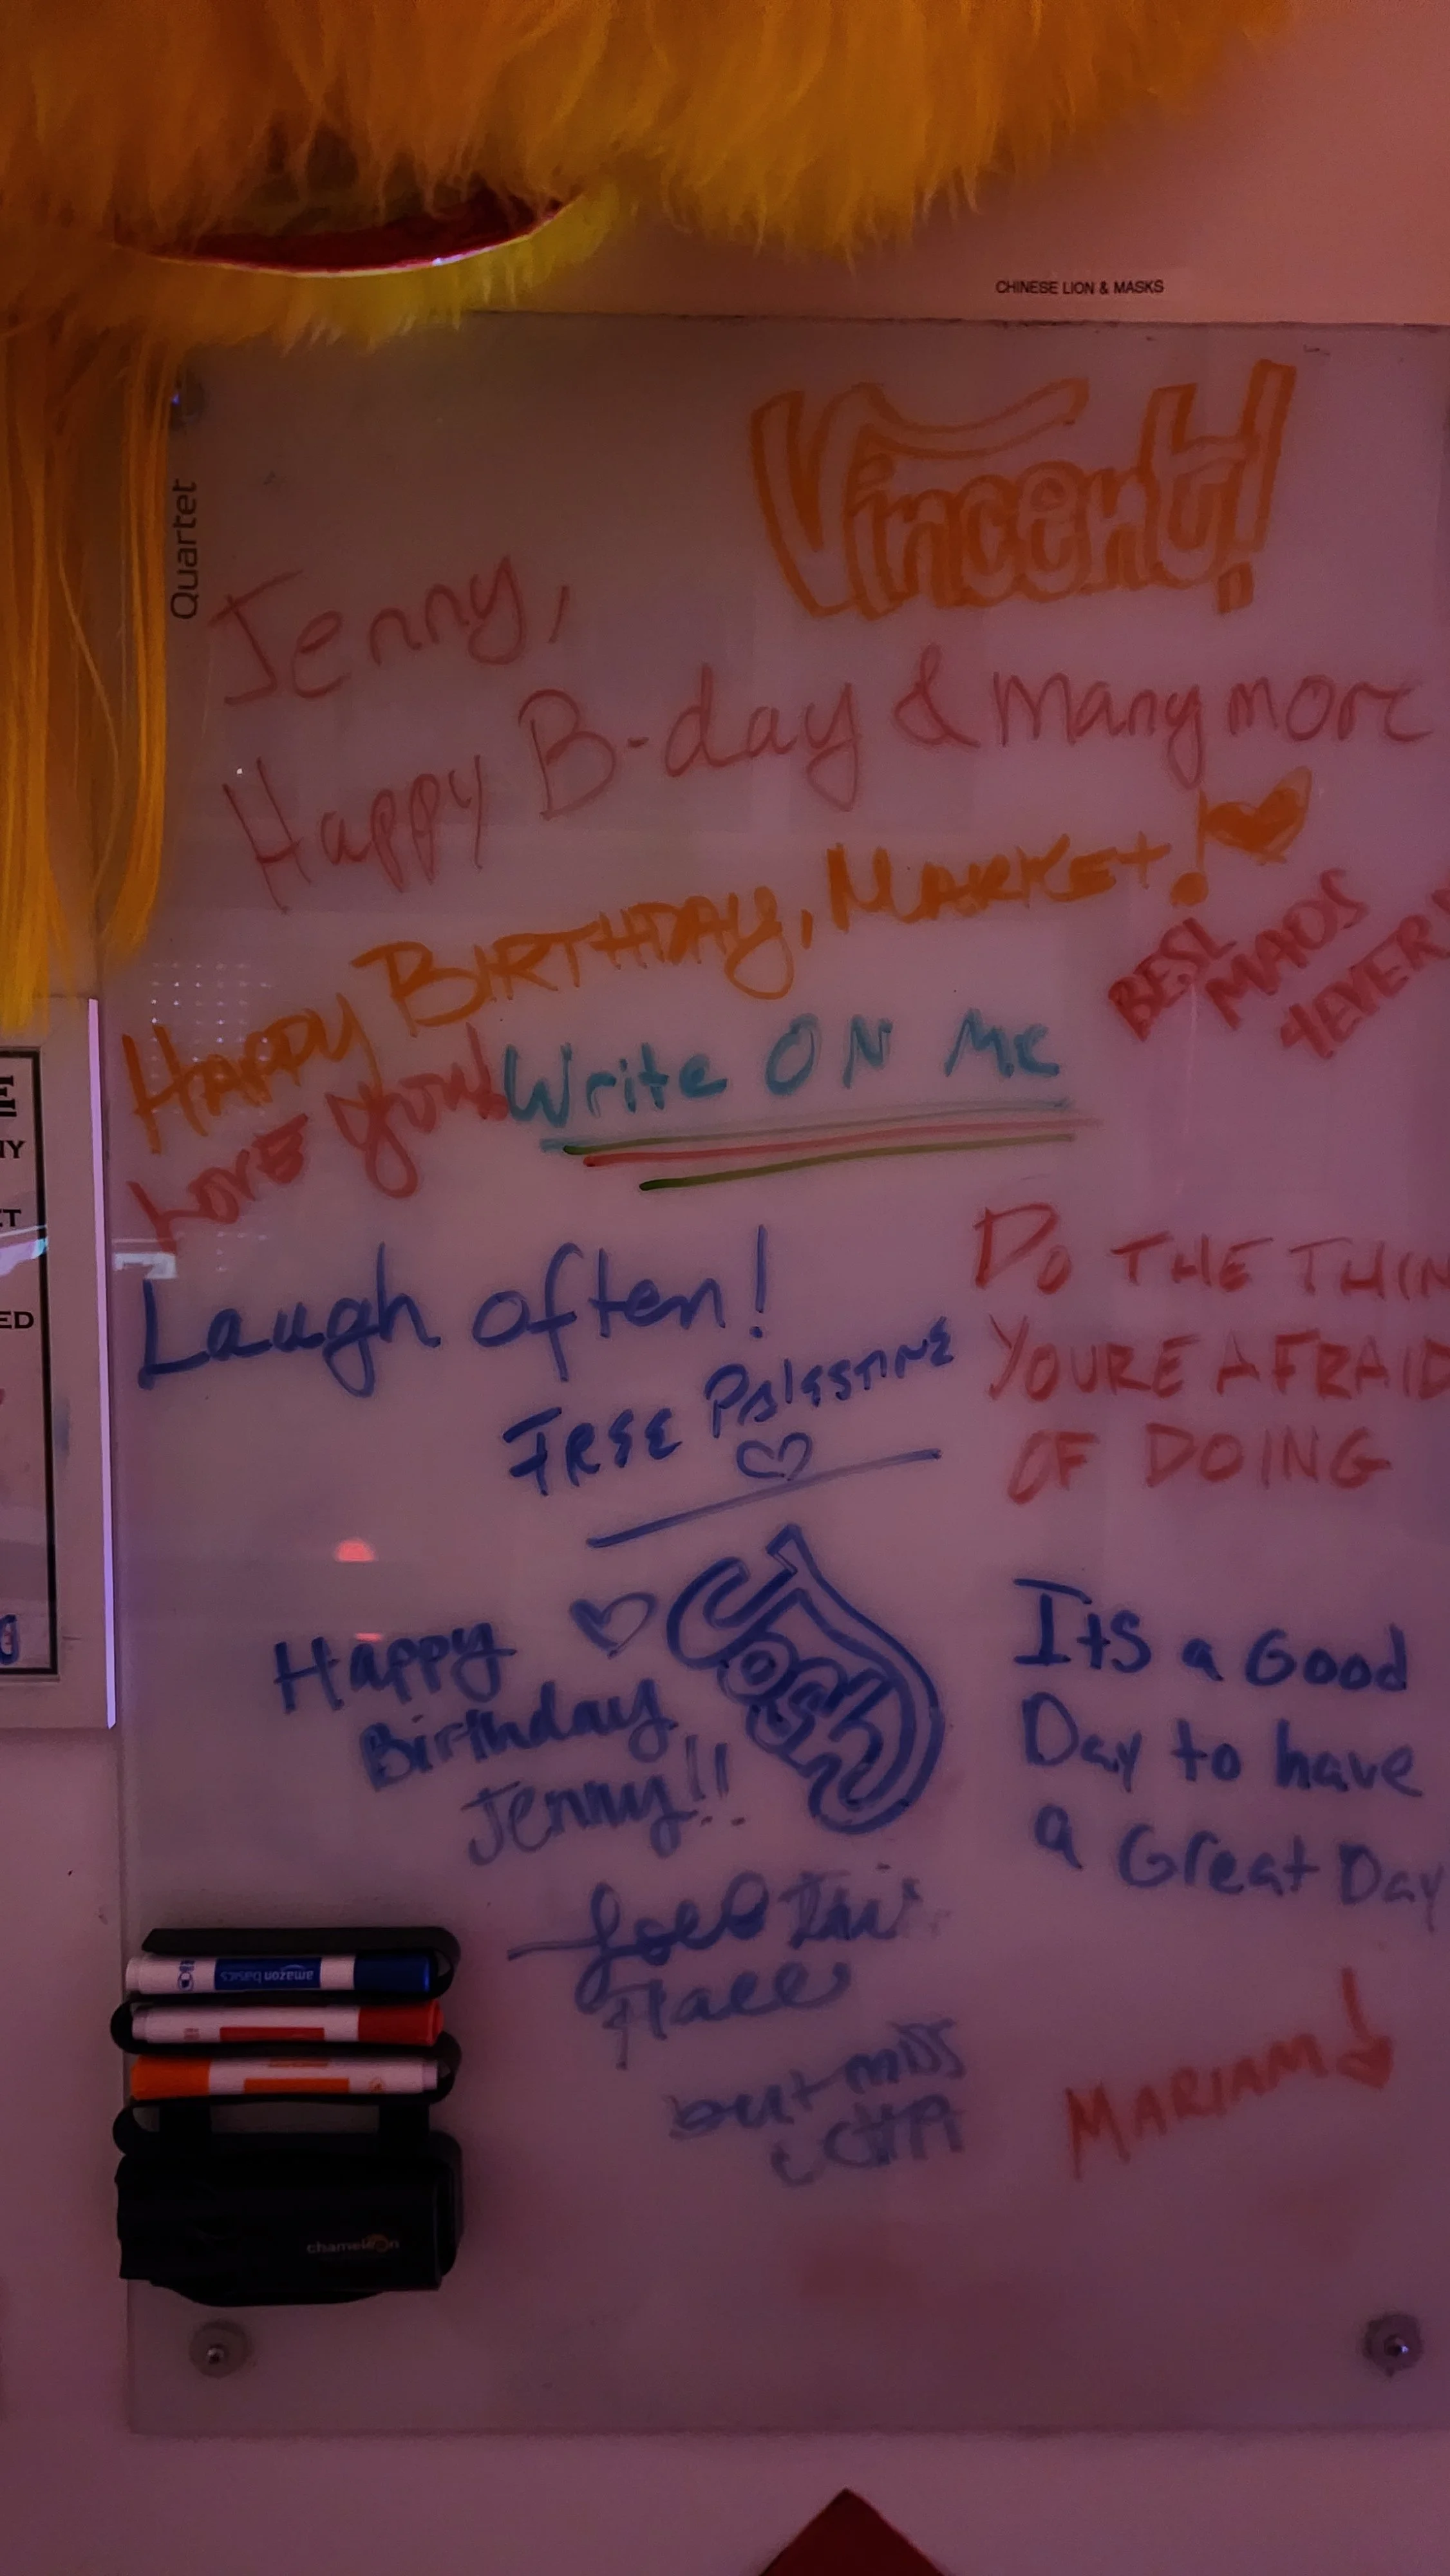 CHINESE LION & MASKS
Quartet
Vincent!
Jenny,
Happy B-day & many more
HAPPY BIRTHDAY, MARKET!
BEST
MAOS
4EVER!
LOVE you!
Write ON Me
Laugh often!
DO THE THIN
YOURE AFRAID
OF DOING
FREE PALESTINE
Josh
Happy
Birthday
Jenny!!
Its a Good
Day to have
a Great Day
Place
but miss
MARIAM
amazon basics
chameleon
E
NY
ET
ED